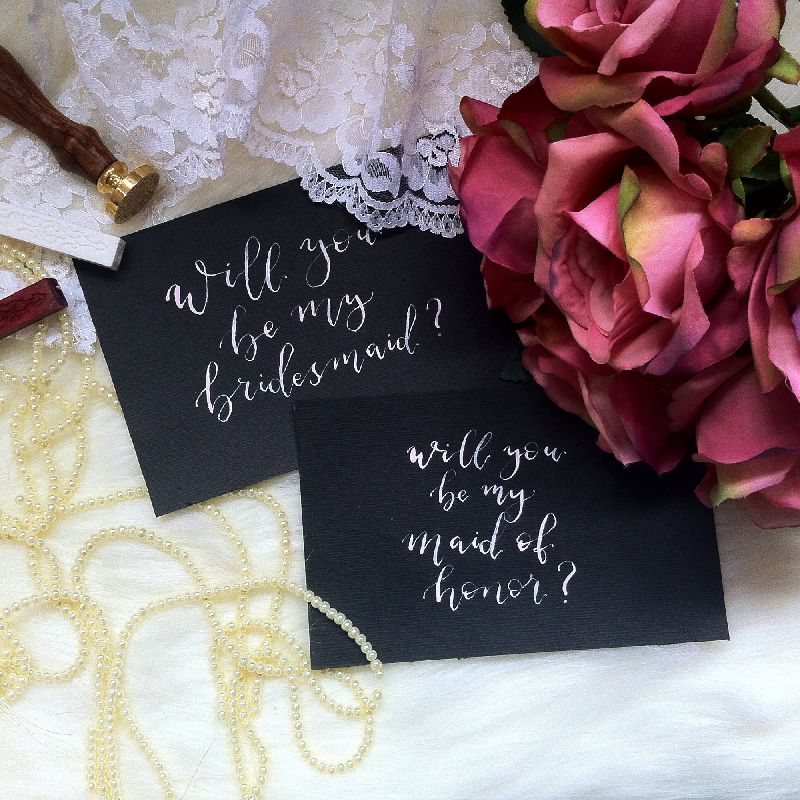 will you
be my
bridesmaid?
will you
be my
maid of
honor?